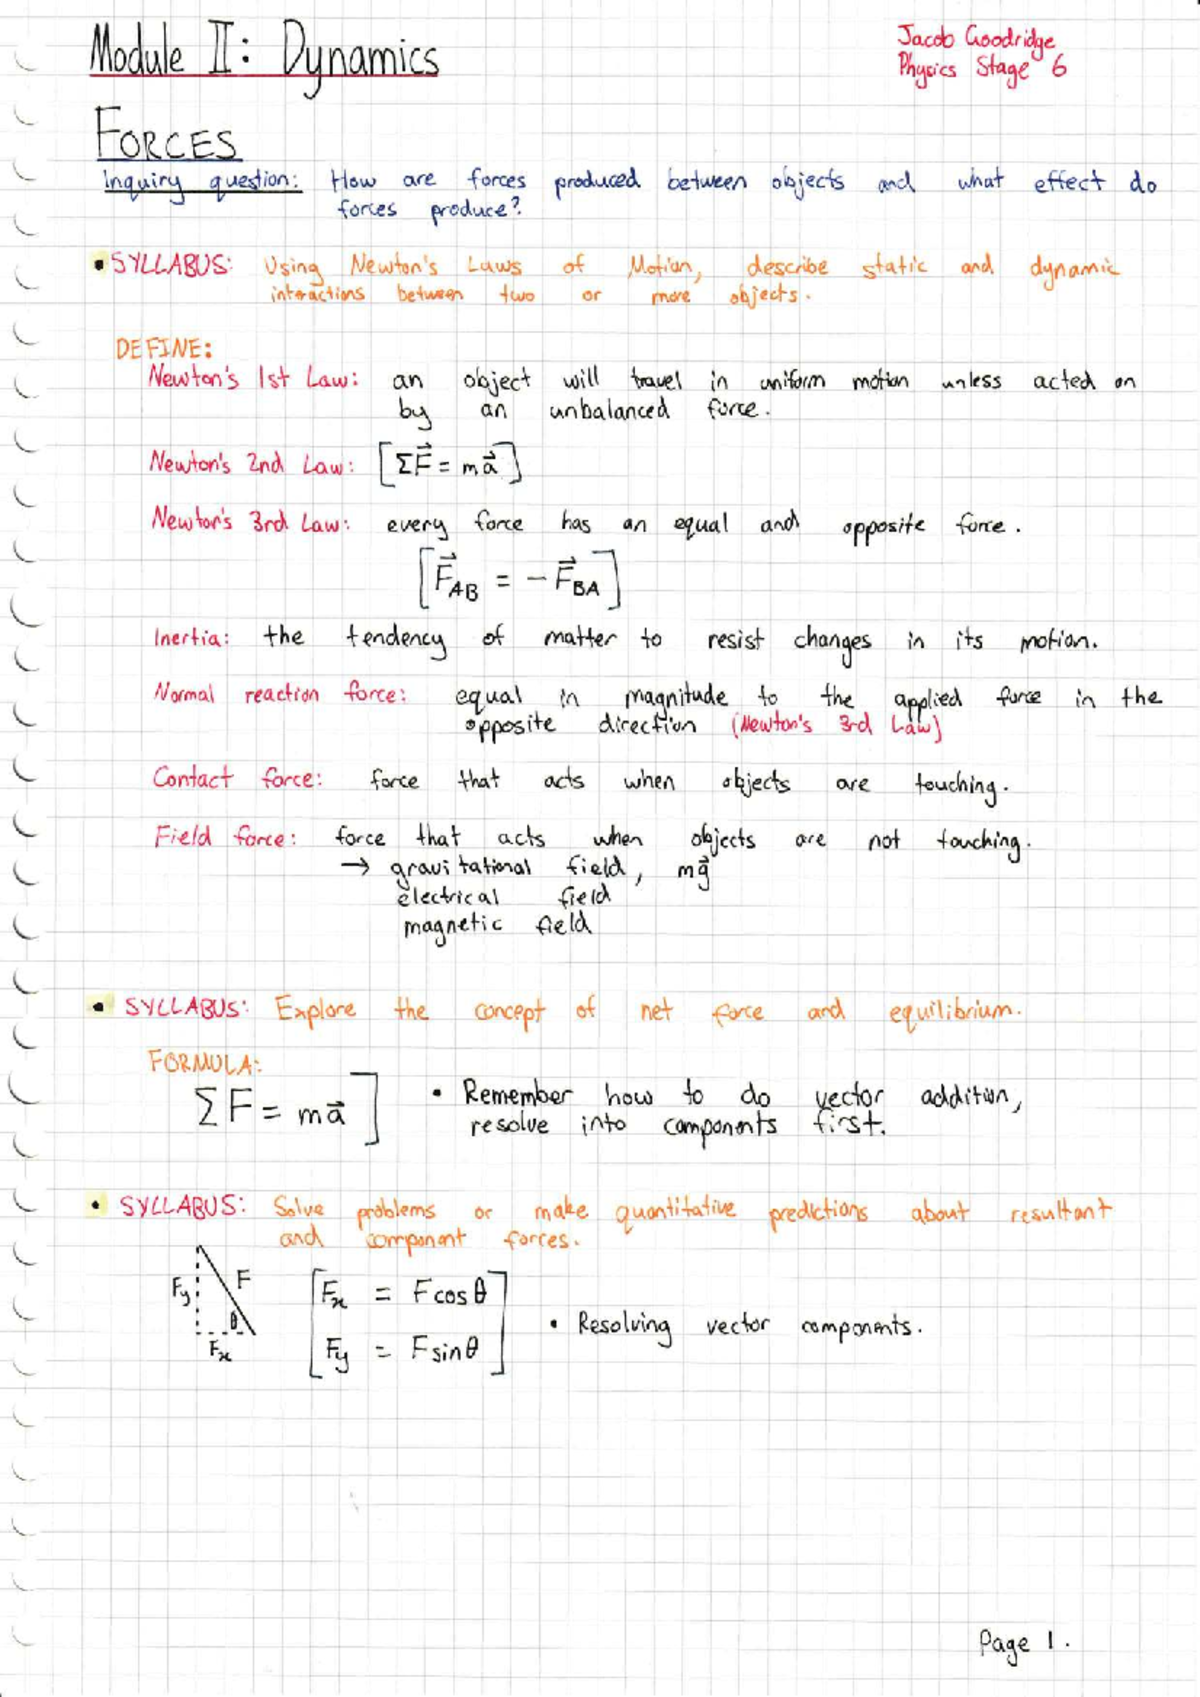 Module II: Dynamics
Jacob Goodridge
Physics Stage 6
FORCES
Inquiry question: How are forces produced between objects and what effect do
forces produce?
• SYLLABUS: Using Newton's Laws of Motion, describe static and dynamic
interactions between two or more objects.
DEFINE:
Newton's 1st Law: an object will travel in uniform motion unless acted on
by an unbalanced force.
Newton's 2nd Law: [ΣF⃗ = ma⃗]
Newton's 3rd Law: every force has an equal and opposite force.
[F⃗AB = -F⃗BA]
Inertia: the tendency of matter to resist changes in its motion.
Normal reaction force: equal in magnitude to the applied force in the
opposite direction (Newton's 3rd Law)
Contact force: force that acts when objects are touching.
Field force: force that acts when objects are not touching.
→ gravitational field, mg⃗
electrical field
magnetic field
• SYLLABUS: Explore the concept of net force and equilibrium.
FORMULA:
ΣF = ma⃗]
• Remember how to do vector addition,
resolve into components first.
• SYLLABUS: Solve problems or make quantitative predictions about resultant
and component forces.
Fy F θ Fx
[Fx = Fcosθ
Fy = Fsinθ]
• Resolving vector components.
Page 1.